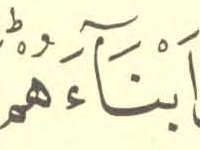 اَبْنَآءَهُمْ